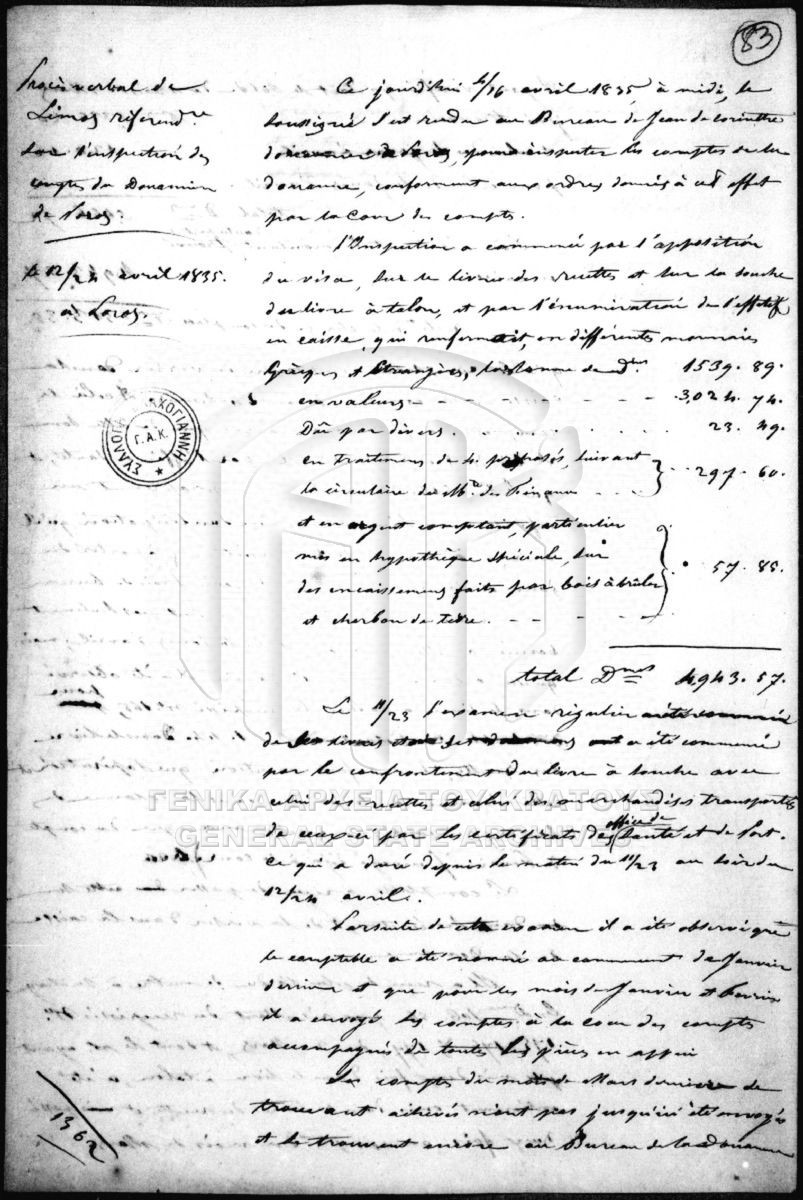 83
Procès verbal de
Limos référend.re
sur l'inspection des
comptes du Douanier
de Poros.
le 12/24 avril 1835.
à Poros.
Ce jourd'hui 4/16 avril 1835, à midi, le
soussigné s'est rendu au Bureau de Jean de
douanier de Poros, pour inspecter les comptes de la
douane, conforment aux ordres donnés à cet effet
par la Cour des comptes.
l'Inspection a commencé par l'apposition
du visa, sur le livre des recettes et sur la souche
du livre à talon, et par l'énumération de l'effectif
en caisse, qui renfermait, en différentes monnaies
Grècques et Etrangères, la somme de 1539. 89.
en valeurs 3,024. 74.
Dû par divers. 23. 49.
en traitemens de 4. préposés, suivant
la circulaire du M.re des Finances 297. 60.
et en argent comptant, particulier
mis en hypothèque spéciale, sur
des encaissemens faits par bois à brûler
et charbon de terre. 57. 85.
total D.mes 4943. 57.
Le 11/23 l'examen régulier
de a été commencé
par le confrontement du livre à souche avec
celui des recettes et celui des marchandises transportés
de ceux ci par les certificats des office de Santé et de Port.
ce qui a duré depuis le matin du 11/23 au soir du
12/24 avril.
Par suite de cette examen il a été observé que
le comptable a été nommé au comment de Janvier
dernier et que pour les mois de Janvier et Fevrier
il a envoyé les comptes à la Cour des comptes
accompagnés de toutes les pièces en appui
Les comptes du mois de Mars dernier se
trouvant achevés n'ont pas jusqu'ici été envoyés
et se trouvent encore au Bureau de la Douane
1362
ΣΥΛΛΟΓΗ ΒΛΑΧΟΓΙΑΝΝΗ
Γ.Α.Κ.
ΓΕΝΙΚΑ ΑΡΧΕΙΑ ΤΟΥ ΚΡΑΤΟΥΣ
GENERAL STATE ARCHIVES